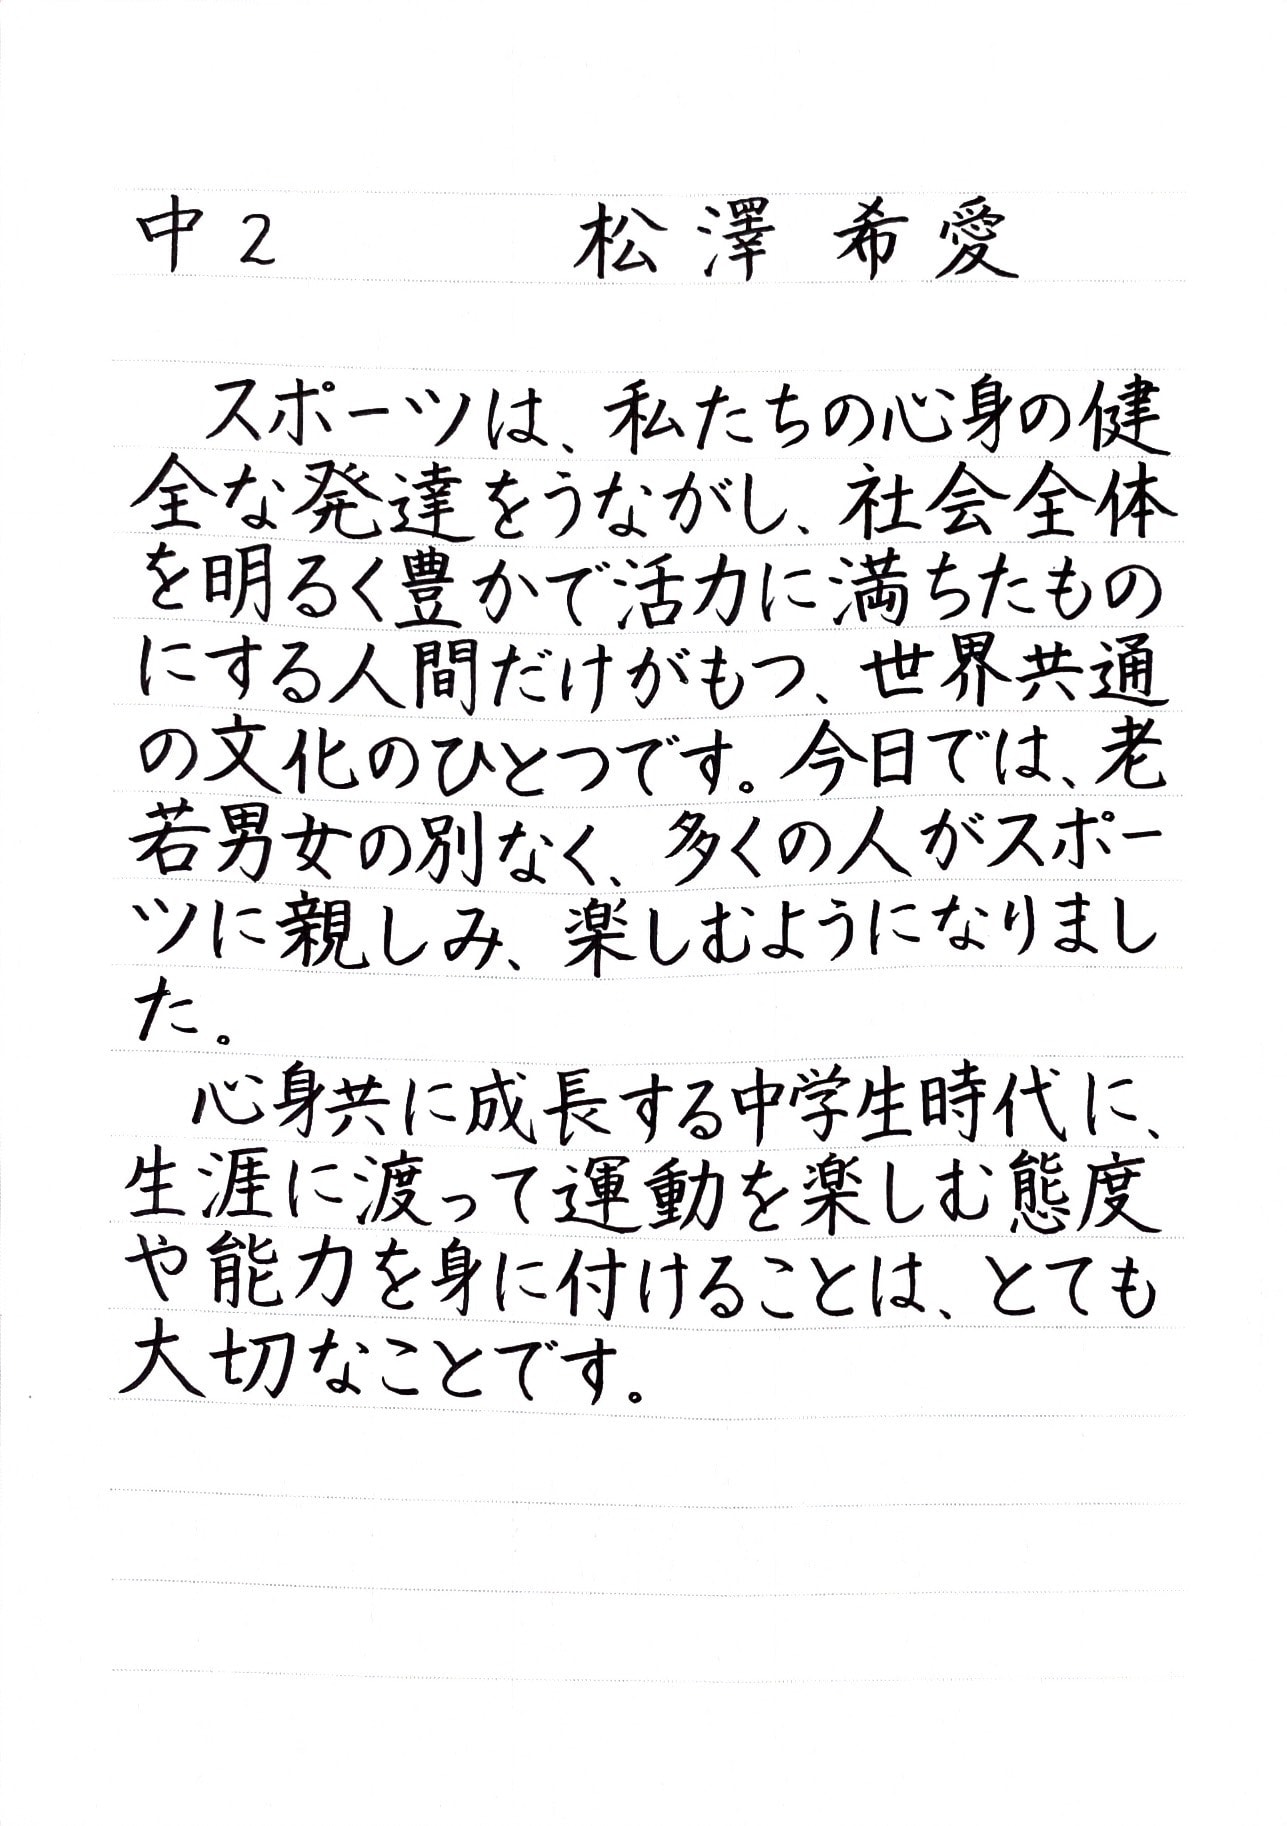 中2　松澤 希愛
スポーツは、私たちの心身の健
全な発達をうながし、社会全体
を明るく豊かで活力に満ちたもの
にする人間だけがもつ、世界共通
の文化のひとつです。今日では、老
若男女の別なく、多くの人がスポー
ツに親しみ、楽しむようになりまし
た。
心身共に成長する中学生時代に、
生涯に渡って運動を楽しむ態度
や能力を身に付けることは、とても
大切なことです。